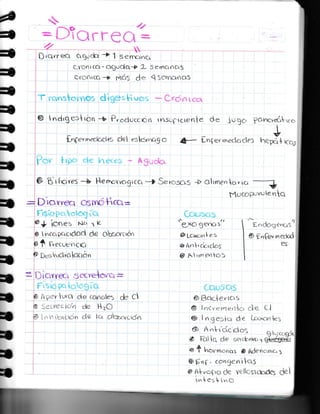 =Diarrea=
Diarrea aguda → 1 semana
cronica-aguda → 2 semanas
cronica → más de 4 semanas
Transtornos digestivos - Crónica
Indigestión → Producción insuficiente de jugo pancreático
Enfermedades del estomago ← Enfermedades hepáticas
Por tipo de heces - Aguda
Biliares → Hemorragica → Serosas → alimentaria
Mucopurulenta
=Diarrea osmótica=
Fisiopatología
↓ iones Na y K
Incapacidad de absorción
↑ Frecuencia
Deshidratación
Causas
"exogenos"
Laxantes
Antiácidos
Alimentos
"Endogenos"
Enfermedad
=Diarrea secretora=
Fisiopatología
Apertura de canales de Cl
Secreción de H2O
Inhibición de la absorción
Causas
Bacterias
Incremento de Cl
Ingesta de Laxantes
Antiácidos
Falta de
↑ hormonas
Enf. congenitas
Atrofia de vellosidades del
intestino